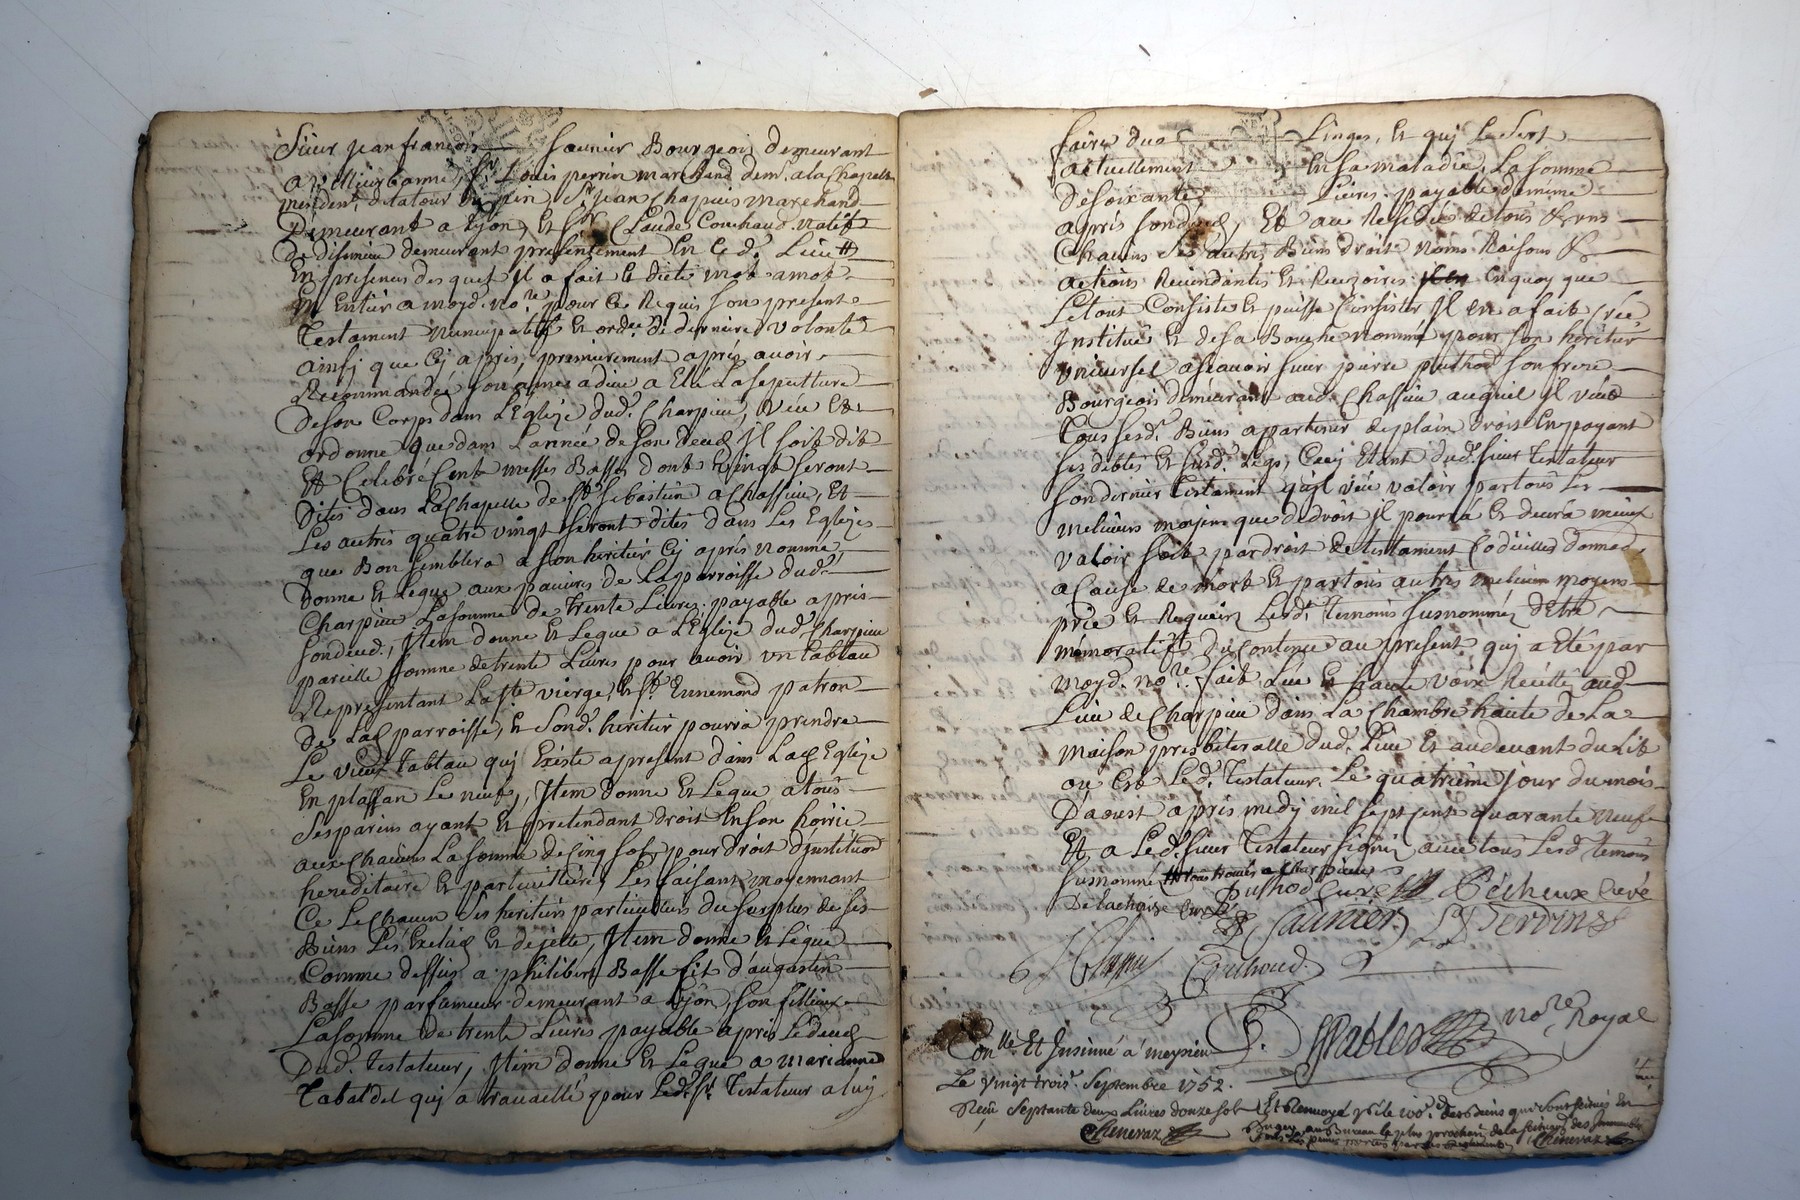 Sieur jean françois saunier Bourgeois demeurant
a villieurbanne, Sr Louis perrin marchand demt. a la chapelle
Sr jean Chapuis marchand
Demeurant a Lyon, et Sr Claude Couchaud natif
de disimieu demeurant presentement en ce d. Lieu #
En presence desquels il a fait et dicté mot amot
en Entier a moyd. nore. pour ce Requis son present
Testament nuncupatif et ordre. de derniere volonté
ainsi que cy apres, premierement aprés avoir
Recommandée son ame a dieu a Elû La sepulture
de son Corps dans L'Eglize dud. Charpieu, veu et
ordonne que dans L'année de son deced il soit dit
et Celebré Cent messes Basses dont vingt seront
Dites dans La Chapelle de St. Sebastien a Chassieu, Et
Les autres quatre vingt seront dites dans Les Eglizes
que Bon semblera a son heritier cy aprés nommé,
Donne et Legue aux pauvres de La parroisse dud.
Charpieu La somme de trente Livres payable apres
son deced., Item donne et Legue a L'Eglize dud. Charpieu
pareille somme de trente Livres pour avoir un tableau
Representant La ste vierge, et St. Ennemond patron
de Lad parroisse, et sond. heritier pourra prendre
Le vieux tablau qui Existe apresent dans Lad Eglize
En plassan Le neuf, Item donne et Legue a tous
ses parens ayant et pretendant droit En son hoirie
aux chacuns La somme de Cinq sols pour droit d'jnstitution
hereditaire et particulliere, Les faisant moyennant
Ce Le chacun ses heritiers particulliers du surplus de ses
Biens Les Exclud et dejette, Item donne et Legue
Comme dessus a philibert Basse fils d'augustin
Basse parfumeur demeurant a Lyon, son fillieux
La somme de trente Livres payable aprés Le deced
Dud. Testateur, Item donne et Legue a marianne
Tabardel qui a travaillé pour Led. Sr. Testateur a luy
faire du Linges, et qui Le sert
actuellement En sa maladie, La somme
De soixante Livres payable de meme
aprés son deced, Et au Residu de tous &
Chacuns ses autres Biens droits noms Raisons &
actions Recindantes et Recizoires en quoy que
Le tout Consiste et puisse Consister Il en a fait crée
Institué et de sa Bouche nommé pour son heritier
universel ascavoir sieur pierre puthod son frere
Bourgeois demeurant aud. Chassieu auquel il veut
Tous sesd. Biens apartenir de plain droit En payant
ses debtes et susd. Legs, Cecy Etant dud. sieur Testateur
son dernier Testament qu'il veu valoir par tous les
melieurs moyens que de droit il pourra et devra mieux
valoir soit par droit de testament Codicilles donnaõn
a Cause de mort et par tous autres melieurs moyens
prie et Requiert Lesd. temoins susnommés D'etre
mémoratifs du Contenu au present qui a eté par
moyd. nore. fait, Lu et haute voix Recitté aud.
Lieu de Charpieu dans La Chambre haute de La
maison presbiteralle dud. Lieu et audevant du Lit
où Est Led. Testateur, Le quatrieme jour du mois
D'aoust aprés midy mil sept cent quarante neuf
Et a Led. sieur Testateur signés avec tous Lesd temoins
susnommé # tous trouvés a
Delachaise Curé Puthod Curé Pécheux Curé
Saunier. L Perrins
Chapuis Couchoud.
nore. Royal
Conlle. Et Insinué a meysieu
Le vingt trois. Septembre 1752.
Reçu Septante deux Livres douze sols Et Renvoyé
Cheneraz
au Bureau le plus prochain de la
Cheneraz